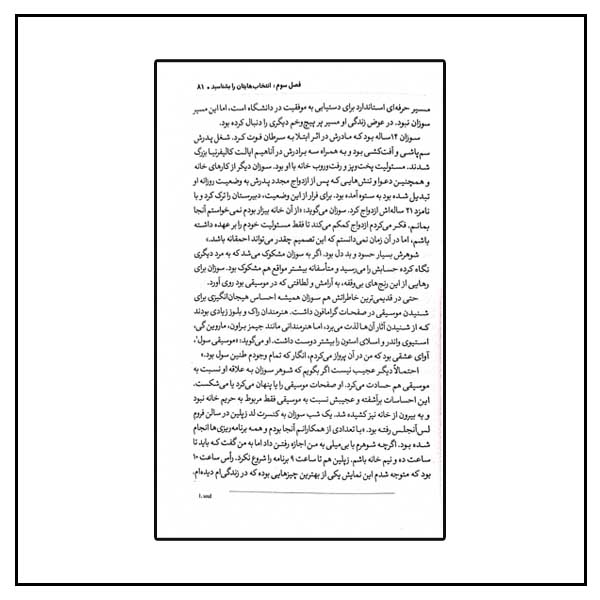 فصل سوم: انتخاب‌هایتان را بشناسید • ۸۱
مسیر حرفه‌ای استاندارد برای دستیابی به موفقیت در دانشگاه است، اما این مسیر
سوزان نبود. در عوض زندگی او مسیر پر پیچ‌وخم دیگری را دنبال کرده بود.
سوزان ۱۴ساله بود که مادرش در اثر ابتلا به سرطان فوت کرد. شغل پدرش
سم‌پاشی و آفت‌کشی بود و به همراه سه برادرش در آناهیم ایالت کالیفرنیا بزرگ
شدند. مسئولیت پخت‌وپز و رفت‌وروب خانه با او بود. سوزان دیگر از کارهای خانه
و همچنین دعوا و تنش‌هایی که پس از ازدواج مجدد پدرش به وضعیت روزانه او
تبدیل شده بود به ستوه آمده بود. برای فرار از این وضعیت، دبیرستان را ترک کرد و با
نامزد ۲۱ ساله‌اش ازدواج کرد. سوزان می‌گوید: «از آن خانه بیزار بودم نمی‌خواستم آنجا
بمانم. فکر می‌کردم ازدواج کمکم می‌کند تا فقط مسئولیت خودم را بر عهده داشته
باشم، اما در آن زمان نمی‌دانستم که این تصمیم چقدر می‌تواند احمقانه باشد.»
شوهرش بسیار حسود و بد دل بود. اگر به سوزان مشکوک می‌شد که به مرد دیگری
نگاه کرده حسابش را می‌رسید و متأسفانه بیشتر مواقع هم مشکوک بود. سوزان برای
رهایی از این رنج‌های بی‌وقفه، به آرامش و لطافتی که در موسیقی بود روی آورد.
حتی در قدیمی‌ترین خاطراتش هم سوزان همیشه احساس هیجان‌انگیزی برای
شنیدن موسیقی در صفحات گرامافون داشت. هنرمندان راک و بلوز زیادی بودند
که از شنیدن آثار آن‌ها لذت می‌برد، اما هنرمندانی مانند جیمز براون، ماروین گی،
استیوی واندر و اسلای استون را بیشتر دوست داشت. او می‌گوید: «موسیقی سول¹،
آوای عشقی بود که من در آن پرواز می‌کردم، انگار که تمام وجودم طنین سول بود.»
احتمالاً دیگر عجیب نیست اگر بگویم که شوهر سوزان به علاقه او نسبت به
موسیقی هم حسادت می‌کرد. او صفحات موسیقی را یا پنهان می‌کرد یا می‌شکست.
این احساسات برآشفته و عجیبش نسبت به موسیقی فقط مربوط به حریم خانه نبود
و به بیرون از خانه نیز کشیده شد. یک شب سوزان به کنسرت لد زپلین در سالن فروم
لس‌آنجلس رفته بود. «با تعدادی از همکارانم آنجا بودم و همه برنامه‌ریزی‌ها انجام
شده بود. اگرچه شوهرم با بی‌میلی به من اجازه رفتن داد اما به من گفت که باید تا
ساعت ده و نیم خانه باشم. زپلین هم تا ساعت ۹ برنامه را شروع نکرد. رأس ساعت ۱۰
بود که متوجه شدم این نمایش یکی از بهترین چیزهایی بوده که در زندگی‌ام دیده‌ام.
1. soul